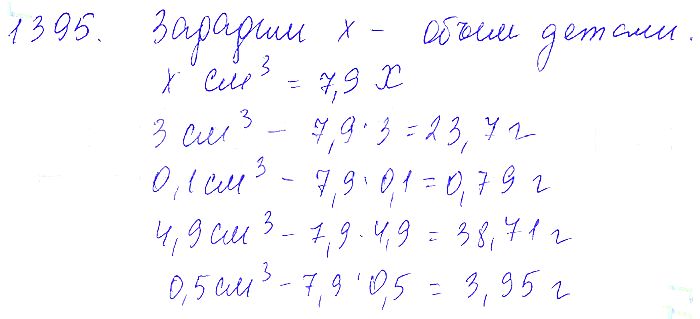 1395. Зададим x – объем детали.
x см³ = 7,9 x
3 см³ – 7,9 · 3 = 23,7 г
0,1 см³ – 7,9 · 0,1 = 0,79 г
4,9 см³ – 7,9 · 4,9 = 38,71 г
0,5 см³ – 7,9 · 0,5 = 3,95 г